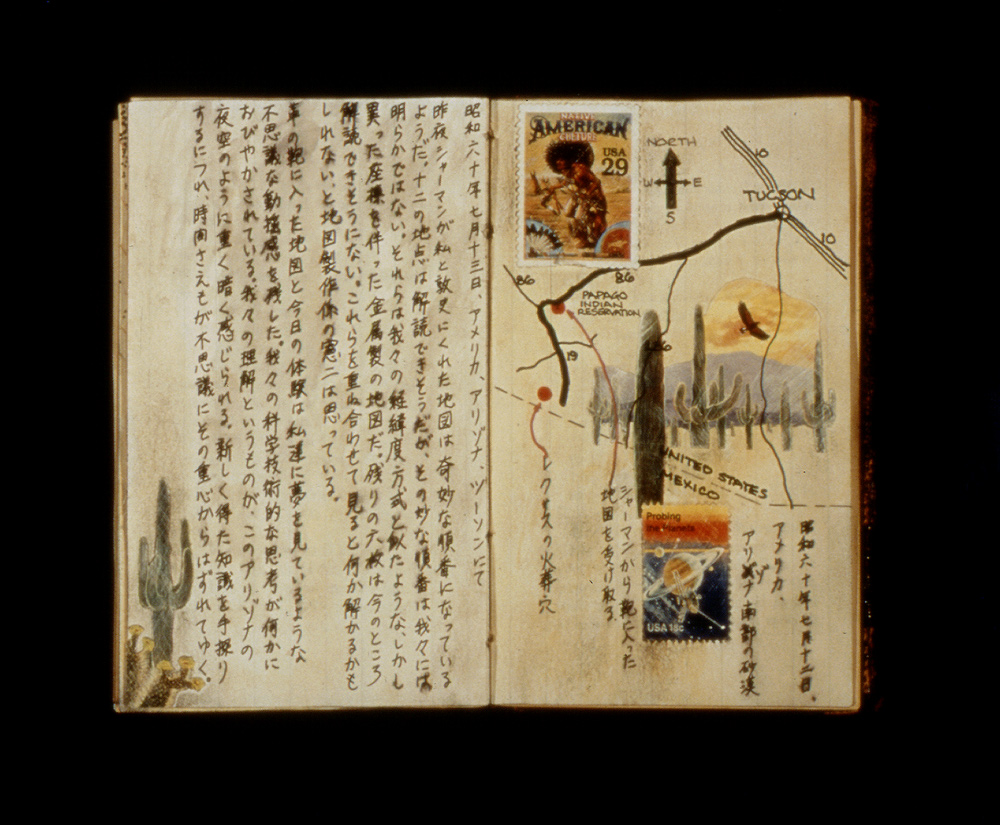 昭和六十年七月十二日、
アメリカ、
アリゾナ南部の砂漠
シャーマンから靴に入った
地図を受け取る
レクイスの火葬穴
NATIVE
AMERICAN
CULTURE
USA
29
NORTH
W E
S
10
TUCSON
10
86
86
PAPAGO
INDIAN
RESERVATION
19
UNITED STATES
MEXICO
Probing
the Planets
USA 18c
昭和六十年七月十三日、アメリカ、アリゾナ、ツーソンにて
昨夜シャーマンが私と敦史にくれた地図は奇妙な順番になっている
ようだ。十二の地点は解読できそうだが、その妙な順番は我々には
明らかではない。それらは我々の経緯度方式と似たような、しかし
異った座標を伴った金属製の地図だ。残りの六枚は今のところ
解読できそうにない。これらを重ね合わせて見ると何か解かるかも
しれない、と地図製作係の憲二は思っている。
革の靴に入った地図と今日の体験は私達に夢を見ているような
不思議な動揺感を残した。我々の科学技術的な思考が何かに
おびやかされている。我々の理解というものが、このアリゾナの
夜空のように重く暗く感じられる。新しく得た知識を手探り
するにつれ、時間さえもが不思議にその重心からはずれてゆく。